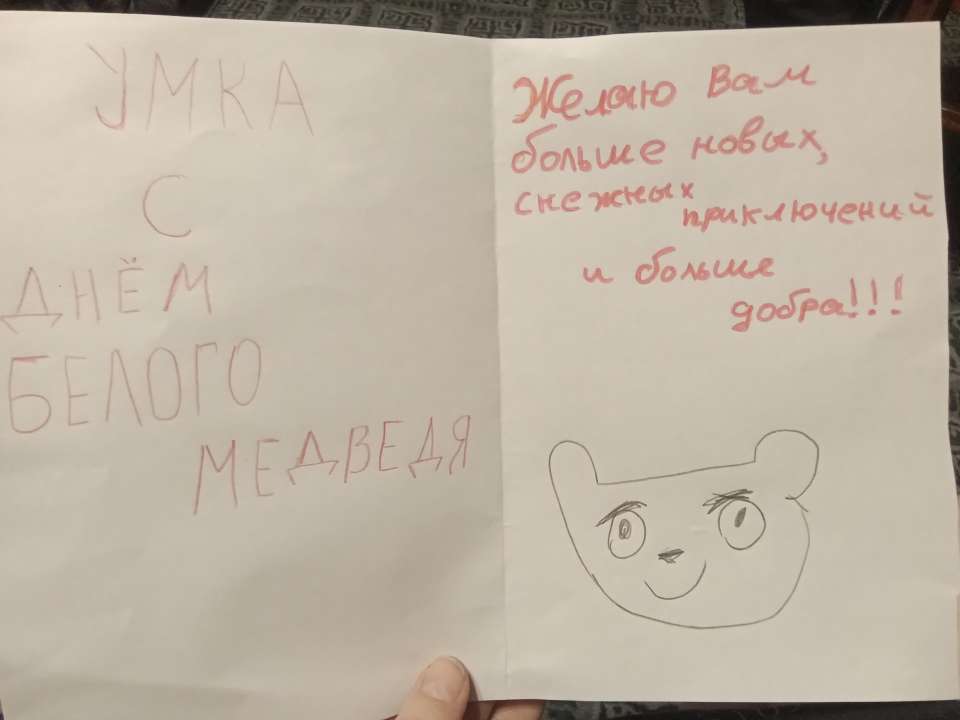 УМКА
С
ДНЁМ
БЕЛОГО
МЕДВЕДЯ
Желаю Вам
больше новых,
снежных
приключений
и больше
добра!!!